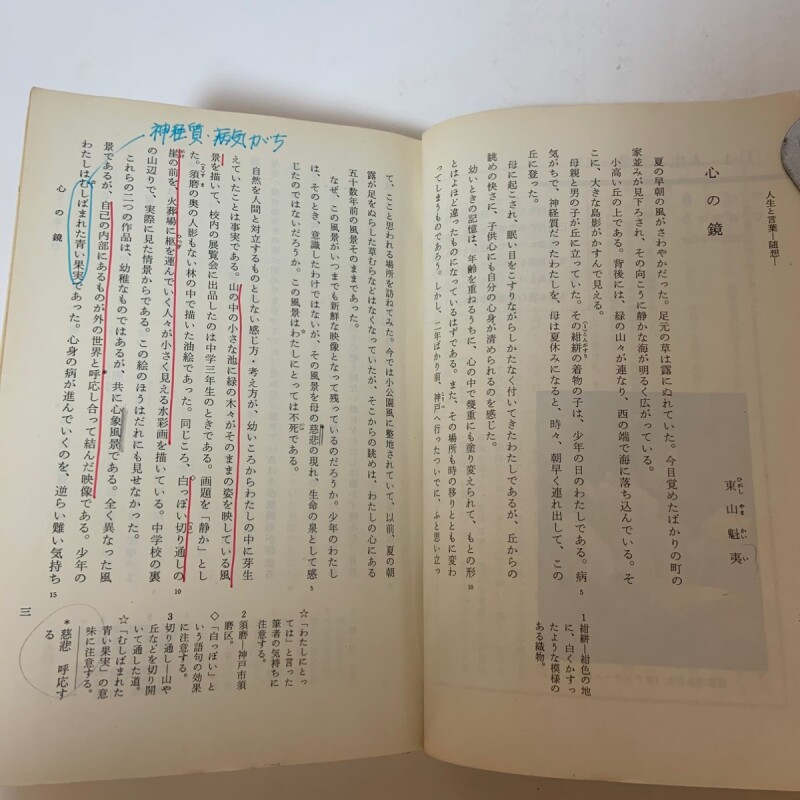 人生と言葉―随想―
心の鏡
東山魁夷
ひがし やま かい い
夏の早朝の風がさわやかだった。足元の草は露にぬれていた。今目覚めたばかりの町の
家並みが見下ろされ、その向こうに静かな海が明るく広がっている。
小高い丘の上である。背後には、緑の山々が連なり、西の端で海に落ち込んでいる。そ
こに、大きな島影がかすんで見える。
母親と男の子が丘に立っていた。その紺絣の着物の子は、少年の日のわたしである。病
気がちで、神経質だったわたしを、母は夏休みになると、時々、朝早く連れ出して、この
丘に登った。
母に起こされ、眠い目をこすりながらしかたなく付いてきたわたしであるが、丘からの
眺めの快さに、子供心にも自分の心身が清められるのを感じた。
幼いときの記憶は、年齢を重ねるうちに、心の中で幾重にも塗り変えられて、もとの形
とはよほど違ったものになっているはずである。また、その場所も時の移りとともに変わ
ってしまうものであろう。しかし、二年ばかり前、神戸へ行ったついでに、ふと思い立っ
5
10
1 紺絣―紺色の地
に、白くかすっ
たような模様の
ある織物。
て、ここと思われる場所を訪ねてみた。今では小公園風に整地されていて、以前、夏の朝
露が足をぬらした草むらなどはなくなっていたが、そこからの眺めは、わたしの心にある
五十数年前の風景そのままであった。
なぜ、この風景がいつまでも新鮮な映像となって残っているのだろうか。少年のわたし
は、そのとき、意識したわけではないが、その風景を母の慈悲の現れ、生命の泉として感
じたのではないだろうか。この風景はわたしにとっては不死である。
自然を人間と対立するものとしない感じ方・考え方が、幼いころからわたしの中に芽生
えていたことは事実である。山の中の小さな池に緑の木々がそのままの姿を映している風
景を描いて、校内の展覧会に出品したのは中学三年生のときである。画題を「静か」とし
た。須磨の奥の人影もない林の中で描いた油絵であった。同じころ、白っぽい切り通しの
崖の前を、火葬場に柩を運んでいく人々が小さく見える水彩画を描いている。中学校の裏
の山辺りで、実際に見た情景からである。この絵のほうはだれにも見せなかった。
これらの二つの作品は、幼稚なものではあるが、共に心象風景である。全く異なった風
景であるが、自己の内部にあるものが外の世界と呼応し合って結んだ映像である。少年の
わたしはむしばまれた青い果実であった。心身の病が進んでいくのを、逆らい難い気持ち
5
10
15
神経質・病気がち
☆「わたしにとっ
ては」と言った
筆者の気持ちに
注意する。
2 須磨―神戸市須
磨区。
◇「白っぽい」と
いう語句の効果
に注意する。
3 切り通し―山や
丘などを切り開
いて通した道。
☆「むしばまれた
青い果実」の意
味に注意する。
*慈悲 呼応す
る
心の鏡
三